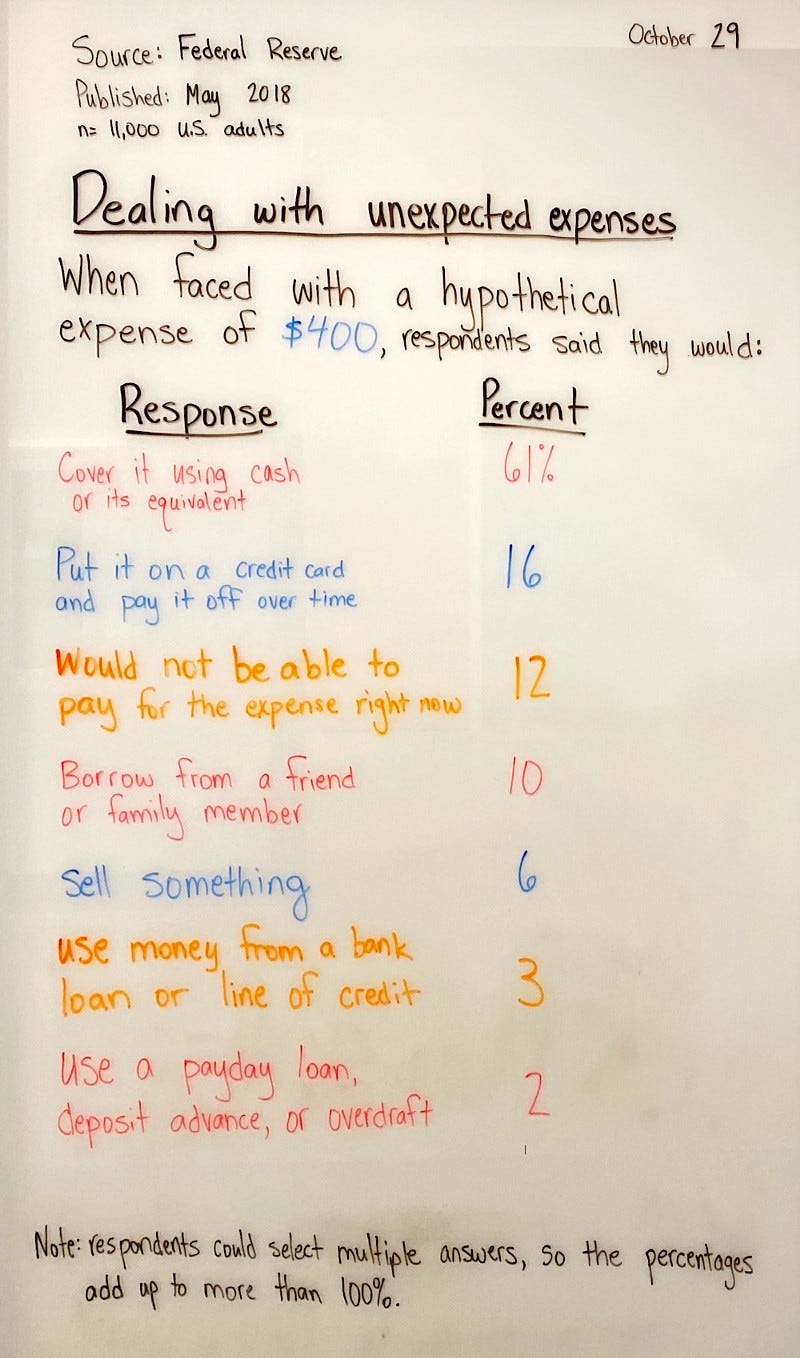 October 29
Source: Federal Reserve
Published: May 2018
n= 11,000 U.S. adults
Dealing with unexpected expenses
When faced with a hypothetical
expense of $400, respondents said they would:
Response Percent
Cover it using cash 61%
or its equivalent
Put it on a credit card 16
and pay it off over time
Would not be able to 12
pay for the expense right now
Borrow from a friend 10
or family member
Sell something 6
use money from a bank 3
loan or line of credit
Use a payday loan, 2
deposit advance, or overdraft
Note: respondents could select multiple answers, so the percentages
add up to more than 100%.